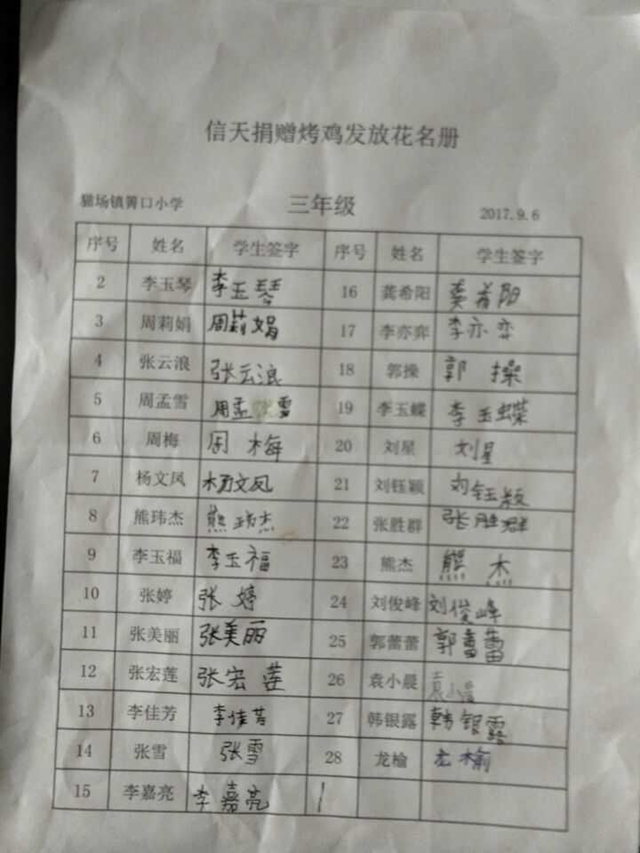 信天捐赠烤鸡发放花名册
猫场镇箐口小学 三年级 2017.9.6
序号 姓名 学生签字 序号 姓名 学生签字
2 李玉琴 李玉琴 16 龚希阳 龚希阳
3 周莉娟 周莉娟 17 李亦弈 李亦弈
4 张云浪 张云浪 18 郭操 郭操
5 周孟雪 周孟雪 19 李玉蝶 李玉蝶
6 周梅 周梅 20 刘星 刘星
7 杨文凤 杨文凤 21 刘钰颖 刘钰颖
8 熊玮杰 熊玮杰 22 张胜群 张胜群
9 李玉福 李玉福 23 熊杰 熊杰
10 张婷 张婷 24 刘俊峰 刘俊峰
11 张美丽 张美丽 25 郭蕾蕾 郭蕾蕾
12 张宏莲 张宏莲 26 袁小晨 袁小晨
13 李佳芳 李佳芳 27 韩银露 韩银露
14 张雪 张雪 28 龙榆 龙榆
15 李嘉亮 李嘉亮